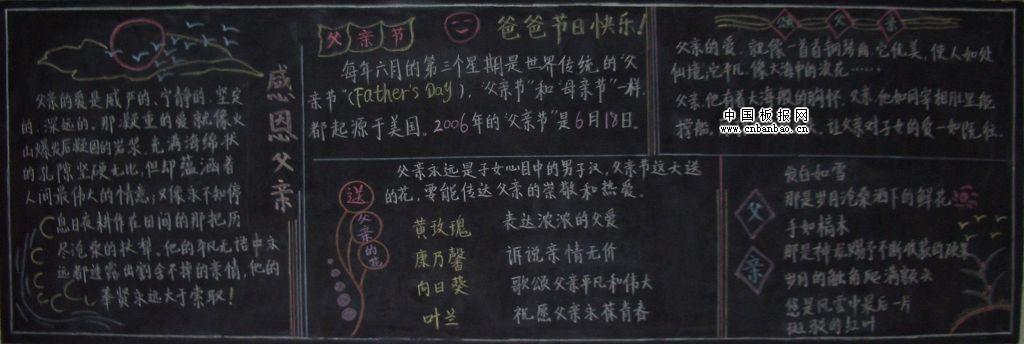 感恩父亲
父亲的爱是威严的、宁静的、坚定
的、深远的。那凝重的爱就像火
山爆发后凝固的岩浆,充满海绵状
的孔隙坚硬无比,但却蕴涵着
人间最伟大的情意,又像永不知停
息日夜耕作在田间的那把历
尽沧桑的 他的平凡无语中永
远都透露出割舍不掉的亲情,他的
奉贤永远大于索取!
父亲节
爸爸节日快乐!
每年六月的第三个星期是世界传统的“父
亲节”(Father's Day),“父亲节”和“母亲节”一样
都起源于美国。2006年的“父亲节”是6月18日。
送父亲的花
父亲永远是子女心目中的男子汉,父亲节这天送
的花,要能传达父亲的崇敬和热爱。
黄玫瑰 表达浓浓的父爱
康乃馨 诉说亲情无价
向日葵 歌颂父亲平凡和伟大
叶兰 祝愿父亲永葆青春
颂父亲
父亲的爱,就像一首首钢琴曲,它优美,使人如处
仙境;它平凡,像大海中的浪花……
父亲,他有着大海般的胸怀,父亲,他如同宰相肚里能
撑船, 让父亲对子女的爱一如既往。
中国板报网
www.cnbanbao.cn
父亲
发白如雪
那是岁月沧桑洒下的鲜花
手如槁木
岁月的触角爬满额头
您是风雪中最后一片
斑驳的红叶